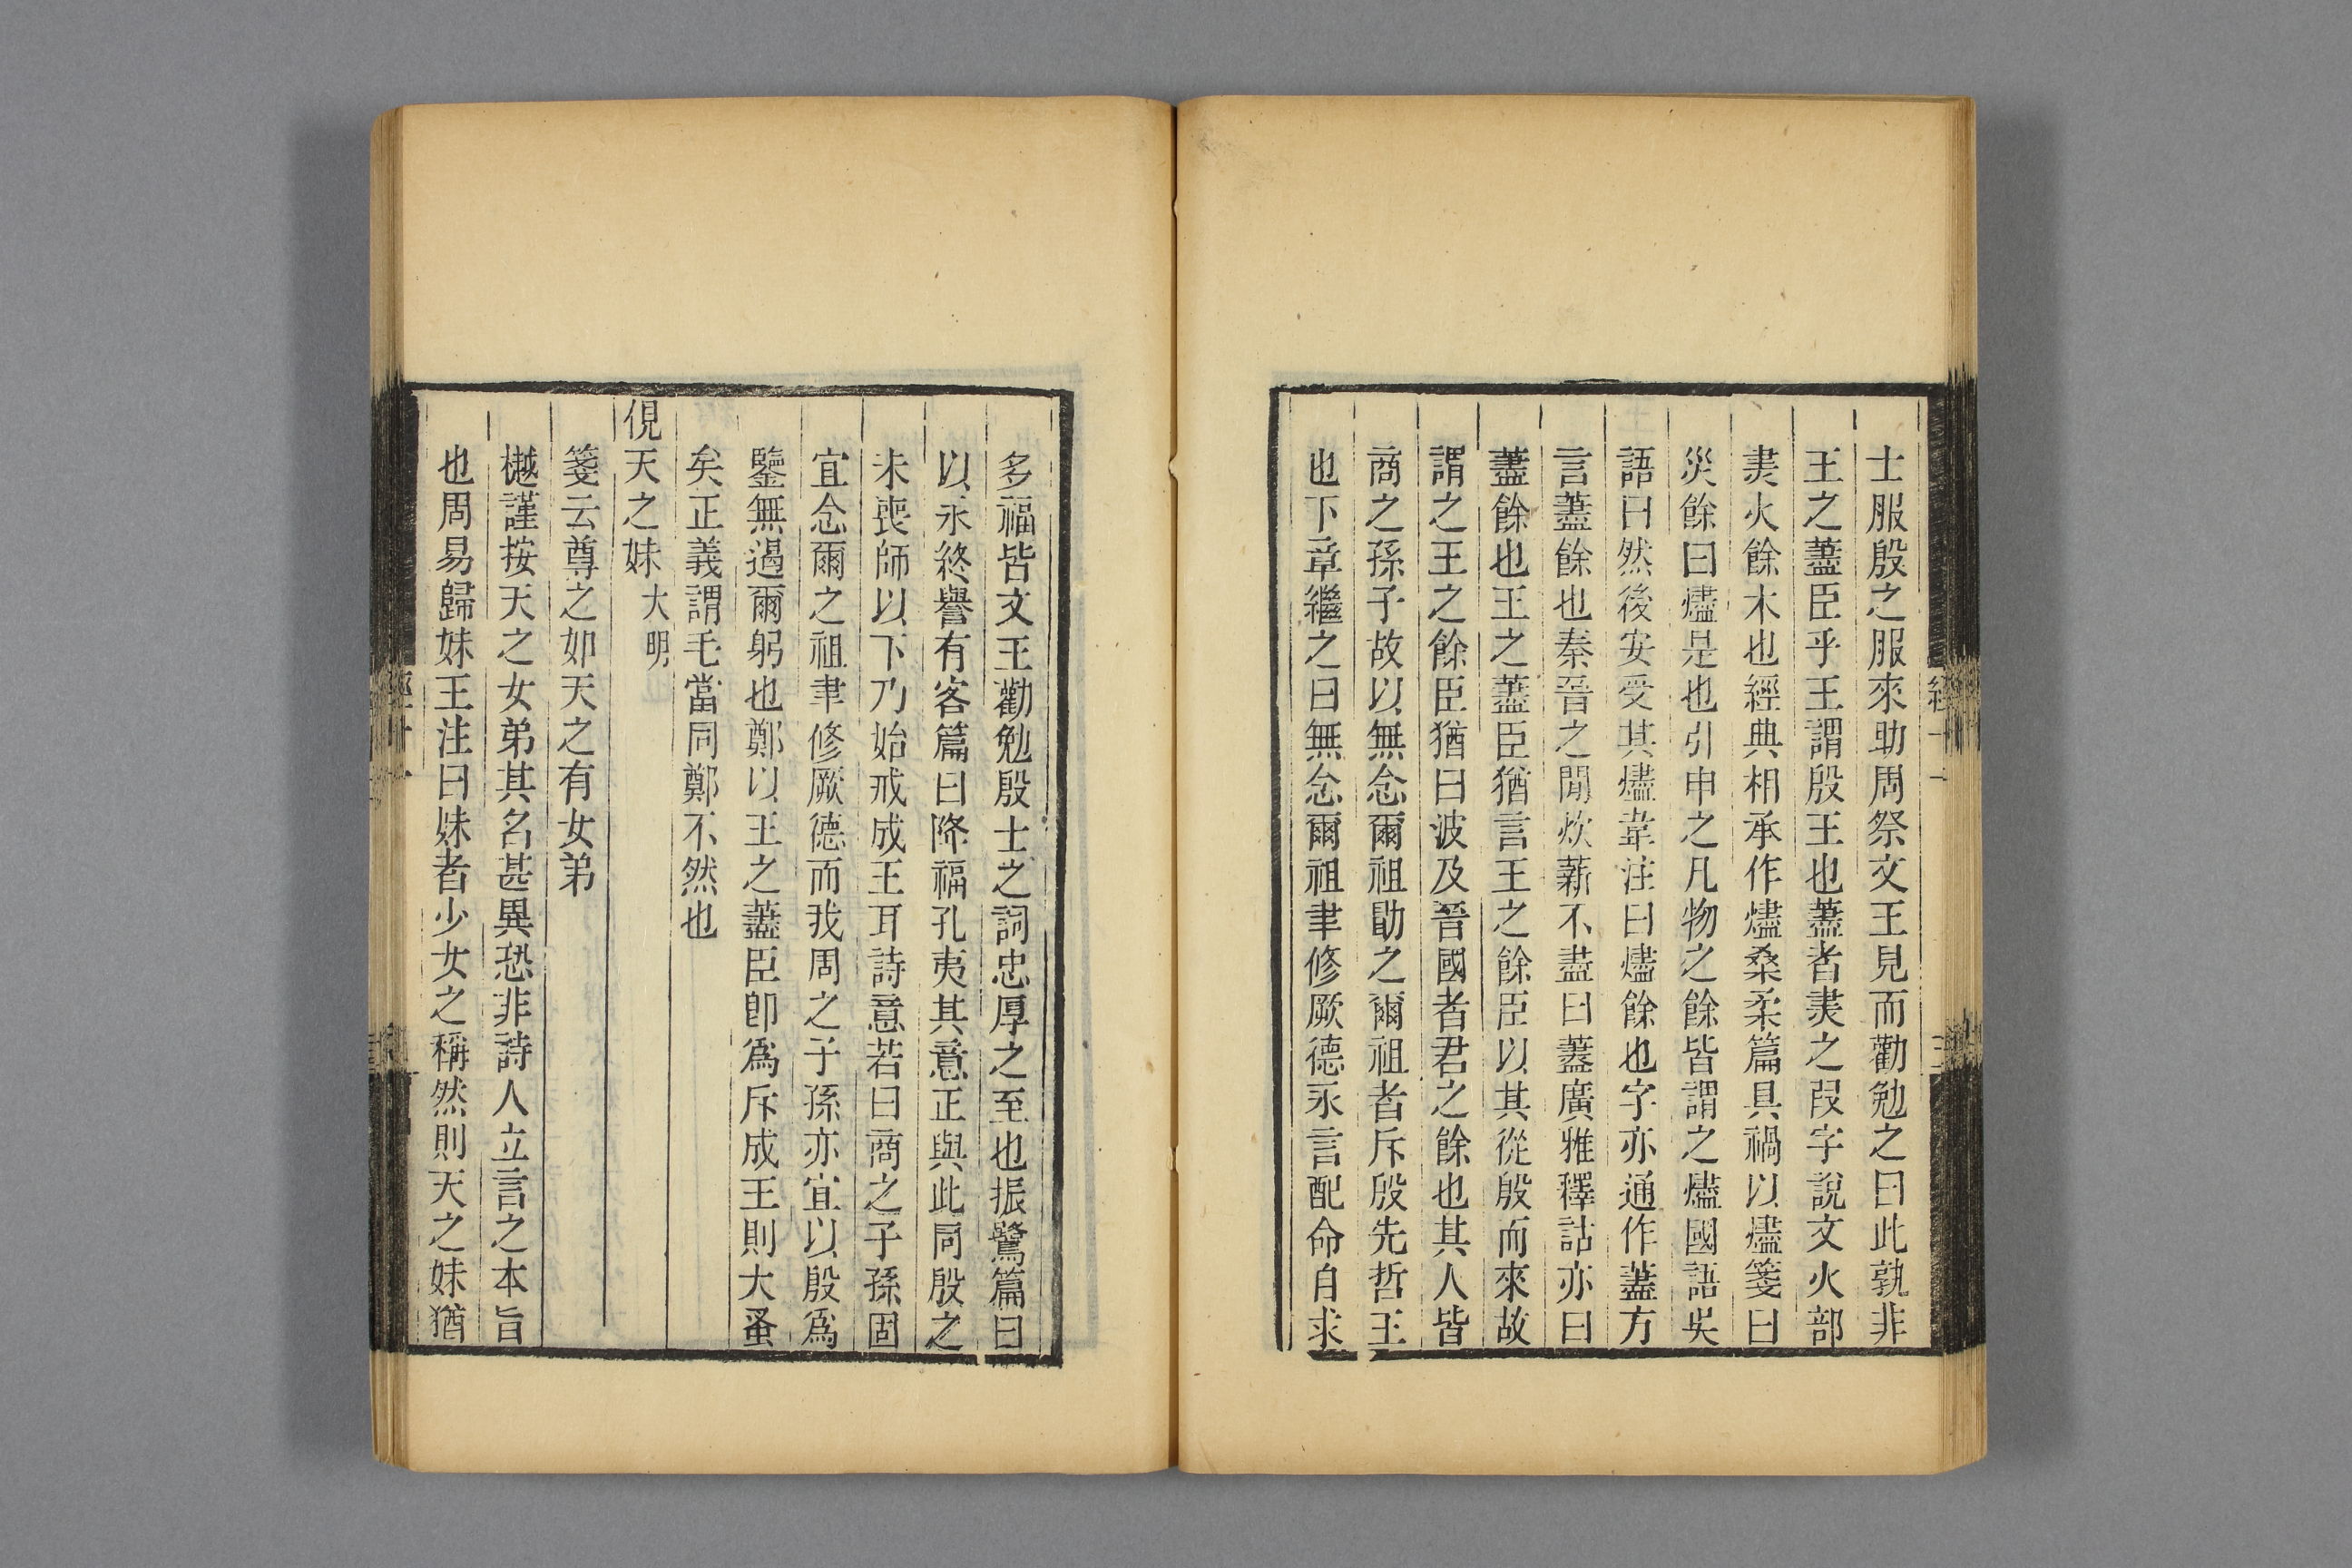 士服殷之服來助周祭文王見而勸勉之曰此孰非
王之藎臣乎王謂殷王也藎者㶳之叚字說文火部
㶳火餘木也經典相承作燼桑柔篇具禍以燼箋曰
災餘曰燼是也引申之凡物之餘皆謂之燼國語吳
語曰然後安受其燼韋注曰燼餘也字亦通作藎方
言藎餘也秦晉之閒炊薪不盡曰藎廣雅釋詁亦曰
藎餘也王之藎臣猶言王之餘臣以其從殷而來故
謂之王之餘臣猶曰波及晉國者君之餘也其人皆
商之孫子故以無念爾祖勖之爾祖者斥殷先哲王
也下章繼之曰無念爾祖聿修厥德永言配命自求
多福皆文王勸勉殷士之詞忠厚之至也振鷺篇曰
以永終譽有客篇曰降福孔夷其意正與此同殷之
未喪師以下乃始戒成王耳詩意若曰商之子孫固
宜念爾之祖聿修厥德而我周之子孫亦宜以殷爲
鑒無遏爾躬也鄭以王之藎臣卽爲斥成王則大蚤
矣正義謂毛當同鄭不然也
俔天之妹 大明
箋云尊之如天之有女弟
樾謹按天之女弟其名甚異恐非詩人立言之本旨
也周易歸妹王注曰妹者少女之稱然則天之妹猶